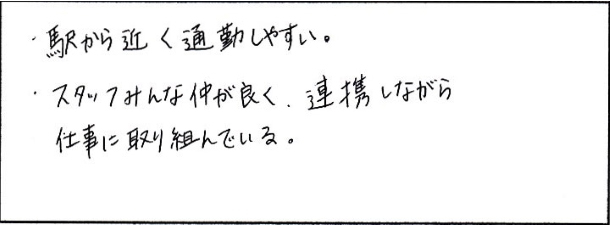 ・駅から近く通勤しやすい。
・スタッフみんな仲が良く、連携しながら
仕事に取り組んでいる。